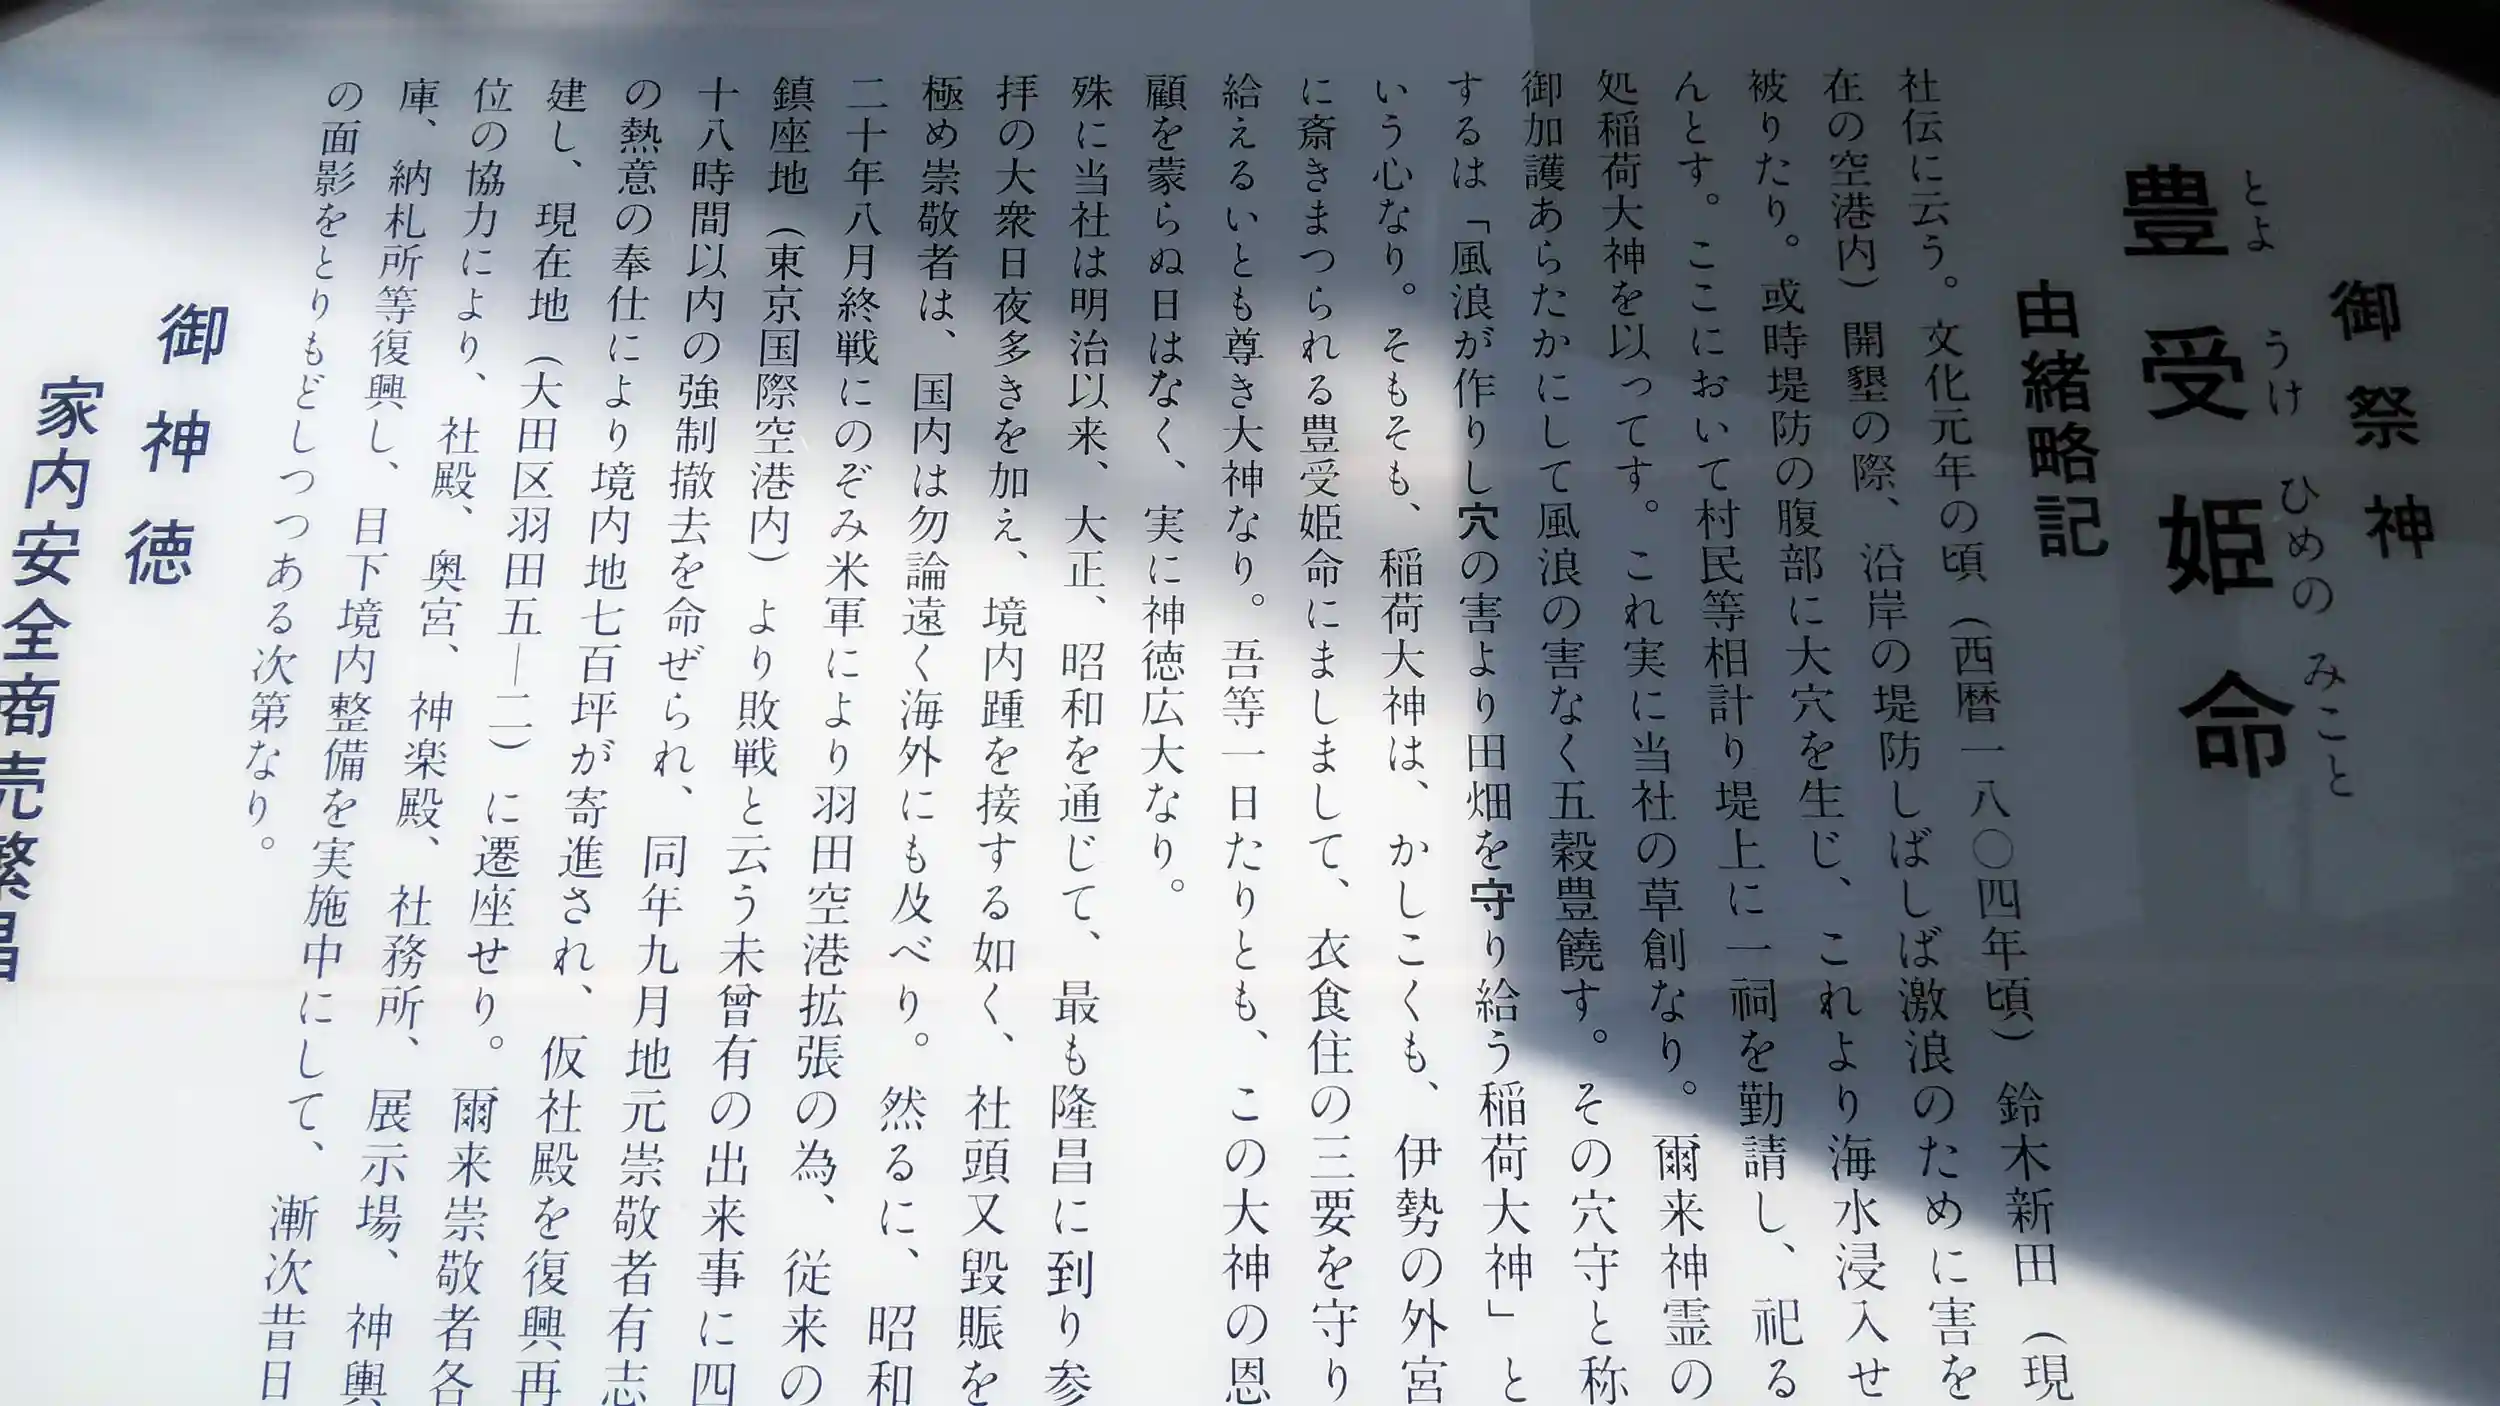 御祭神
豊受姫命
とようけひめのみこと
由緒略記
社伝に云う。文化元年の頃（西暦一八〇四年頃）鈴木新田（現
在の空港内）開墾の際、沿岸の堤防しばしば激浪のために害を
被りたり。或時堤防の腹部に大穴を生じ、これより海水浸入せ
んとす。ここにおいて村民等相計り堤上に一祠を勤請し、祀る
処稲荷大神を以ってす。これ実に当社の草創なり。爾来神霊の
御加護あらたかにして風浪の害なく五穀豊饒す。その穴守と称
するは「風浪が作りし穴の害より田畑を守り給う稲荷大神」と
いう心なり。そもそも、稲荷大神は、かしこくも、伊勢の外宮
に斎きまつられる豊受姫命にましまして、衣食住の三要を守り
給えるいとも尊き大神なり。吾等一日たりとも、この大神の恩
顧を蒙らぬ日はなく、実に神徳広大なり。
殊に当社は明治以来、大正、昭和を通じて、最も隆昌に到り参
拝の大衆日夜多きを加え、境内踵を接する如く、社頭又殷賑を
極め崇敬者は、国内は勿論遠く海外にも及べり。然るに、昭和
二十年八月終戦にのぞみ米軍により羽田空港拡張の為、従来の
鎮座地（東京国際空港内）より敗戦と云う未曾有の出来事に四
十八時間以内の強制撤去を命ぜられ、同年九月地元崇敬者有志
の熱意の奉仕により境内地七百坪が寄進され、仮社殿を復興再
建し、現在地（大田区羽田五－二）に遷座せり。爾来崇敬者各
位の協力により、社殿、奥宮、神楽殿、社務所、展示場、神輿
庫、納札所等復興し、目下境内整備を実施中にして、漸次昔日
の面影をとりもどしつつある次第なり。
御神徳
家内安全商売繁昌